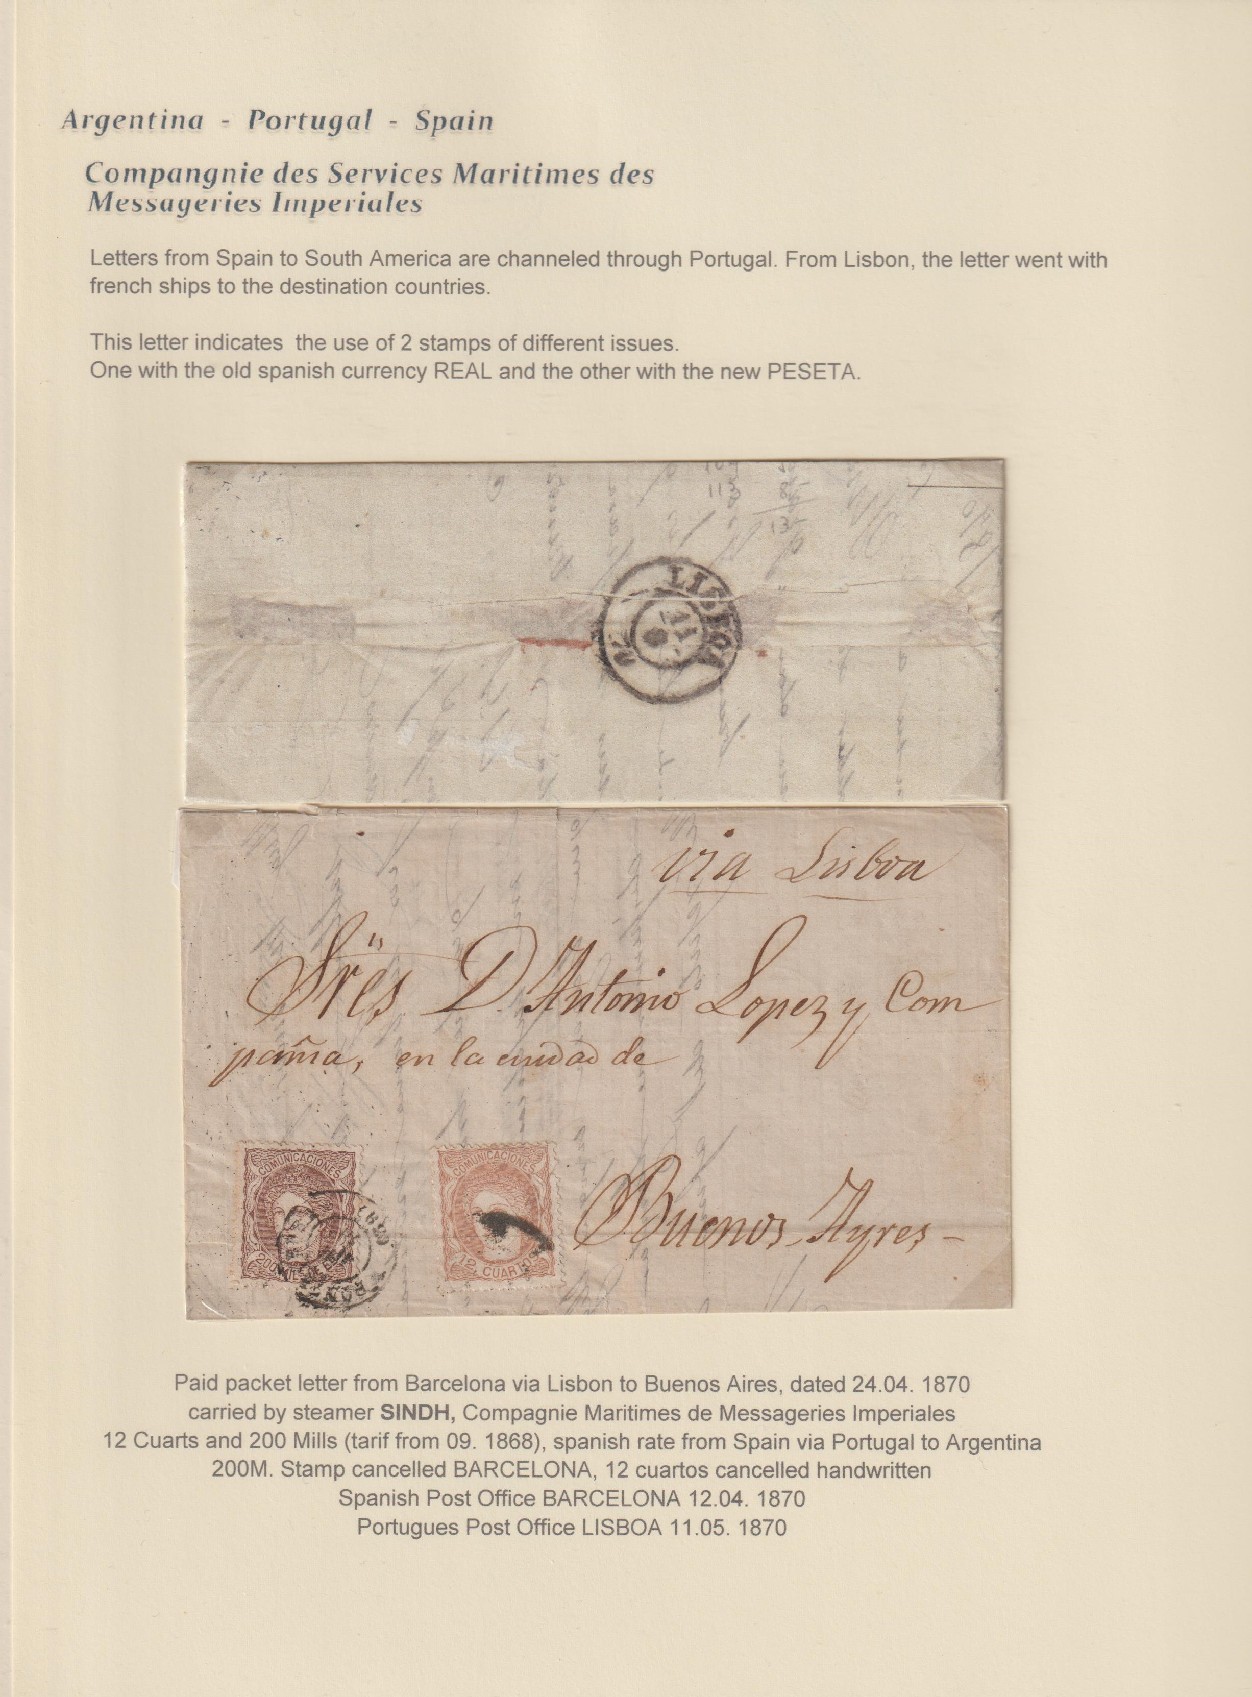 Argentina - Portugal - Spain
Compangnie des Services Maritimes des
Messageries Imperiales
Letters from Spain to South America are channeled through Portugal. From Lisbon, the letter went with
french ships to the destination countries.
This letter indicates the use of 2 stamps of different issues.
One with the old spanish currency REAL and the other with the new PESETA.
LISBOA
via Lisboa
Sres D. Antonio Lopez y Com
pañia, en la ciudad de
COMUNICACIONES
COMUNICACIONES
Buenos Ayres -
12 CUARTOS
Paid packet letter from Barcelona via Lisbon to Buenos Aires, dated 24.04. 1870
carried by steamer SINDH, Compagnie Maritimes de Messageries Imperiales
12 Cuarts and 200 Mills (tarif from 09. 1868), spanish rate from Spain via Portugal to Argentina
200M. Stamp cancelled BARCELONA, 12 cuartos cancelled handwritten
Spanish Post Office BARCELONA 12.04. 1870
Portugues Post Office LISBOA 11.05. 1870